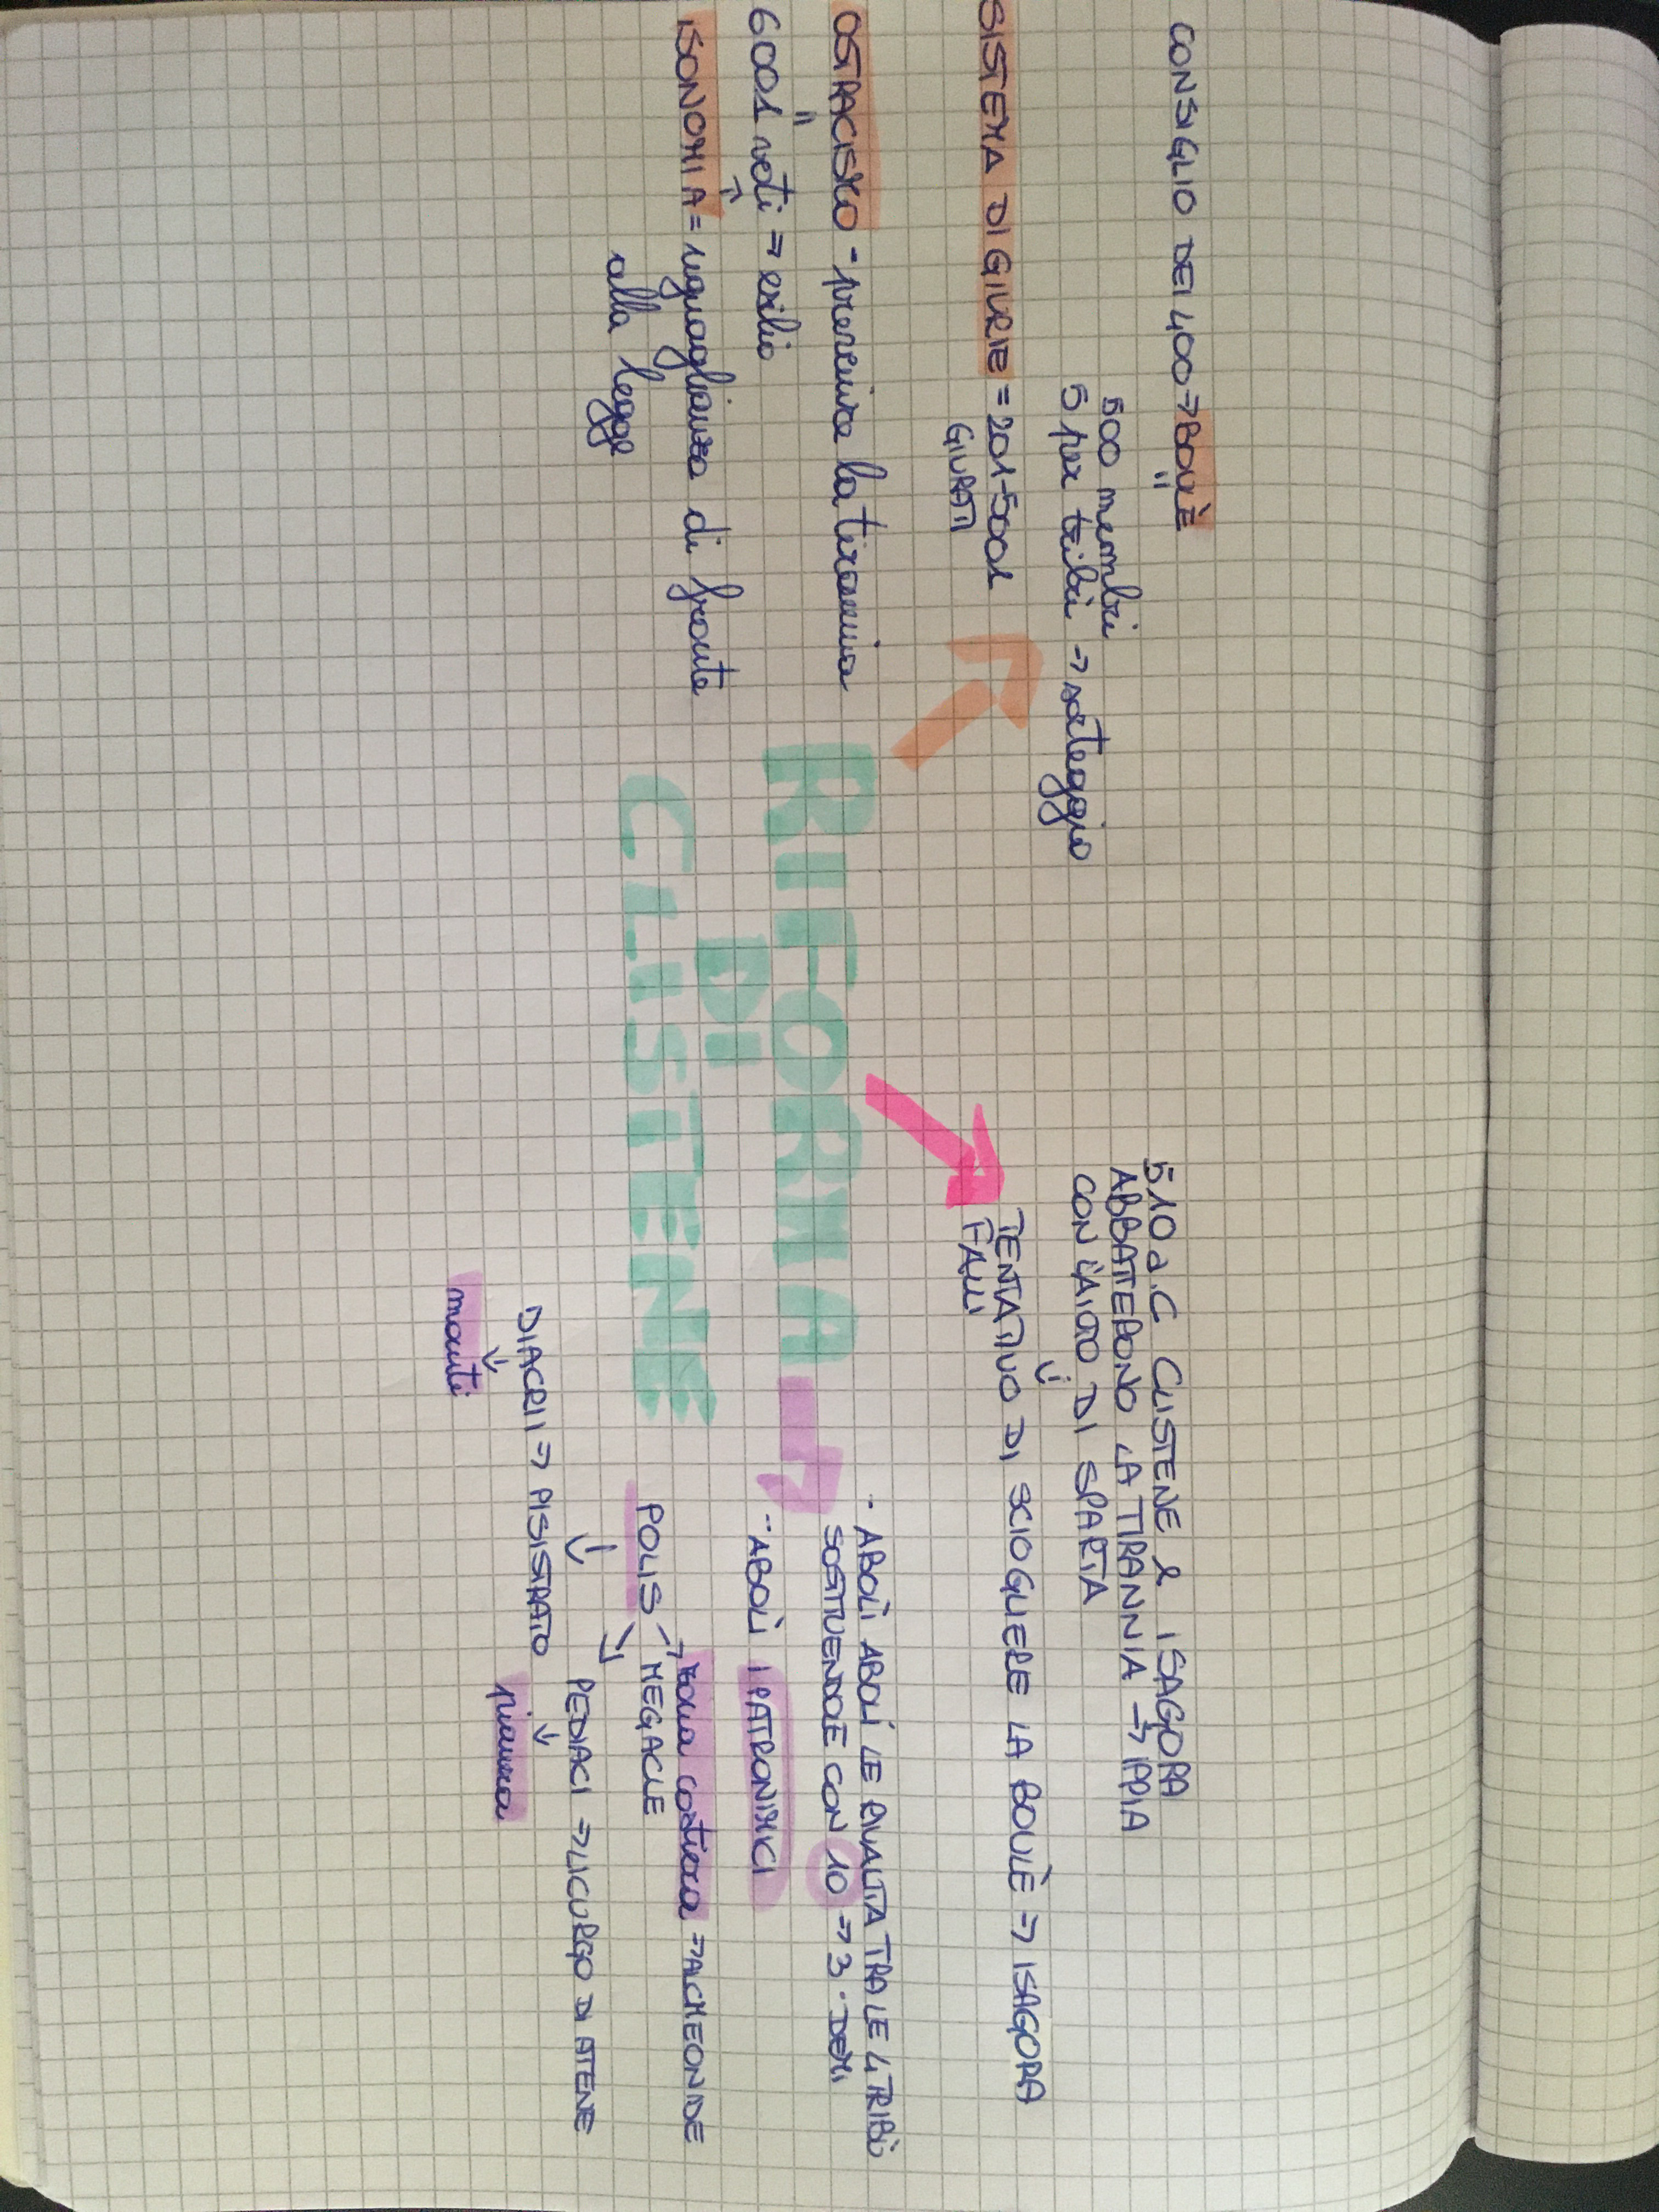 CONSIGLIO DEI 400 → BOULÈ
500 membri
5 per tribù → sorteggio
SISTEMA DI GIURIE = 201-5001
GIURATI
OSTRACISMO - prevenire la tirannia
6001 voti → esilio
ISONOMIA = uguaglianza di fronte
alla legge
RIFORMA
DI
CLISTENE
510 a.C CLISTENE & ISAGORA
ABBATTERONO LA TIRANNIA → IPPIA
CON L'AIUTO DI SPARTA
TENTATIVO DI SCIOGLIERE LA BOULÈ → ISAGORA
FALLÌ
- ABOLÌ ABOLÌ LE RIVALITA TRA LE 4 TRIBÙ
SOSTITUENDOLE CON 10 → 3 DEMI
- ABOLÌ I PATRONIMICI
zona costiera → ALCMEONIDE
POLIS → MEGACLE
PEDIACI → LICURGO DI ATENE
pianura
DIACRII → PISISTRATO
monti